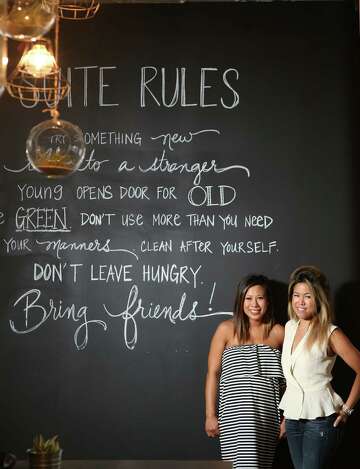 SUITE RULES
TRY SOMETHING new
to a stranger
YOUNG OPENS DOOR FOR OLD
GREEN. DON'T USE MORE THAN YOU NEED
YOUR manners. CLEAN AFTER YOURSELF.
DON'T LEAVE HUNGRY.
Bring friends!